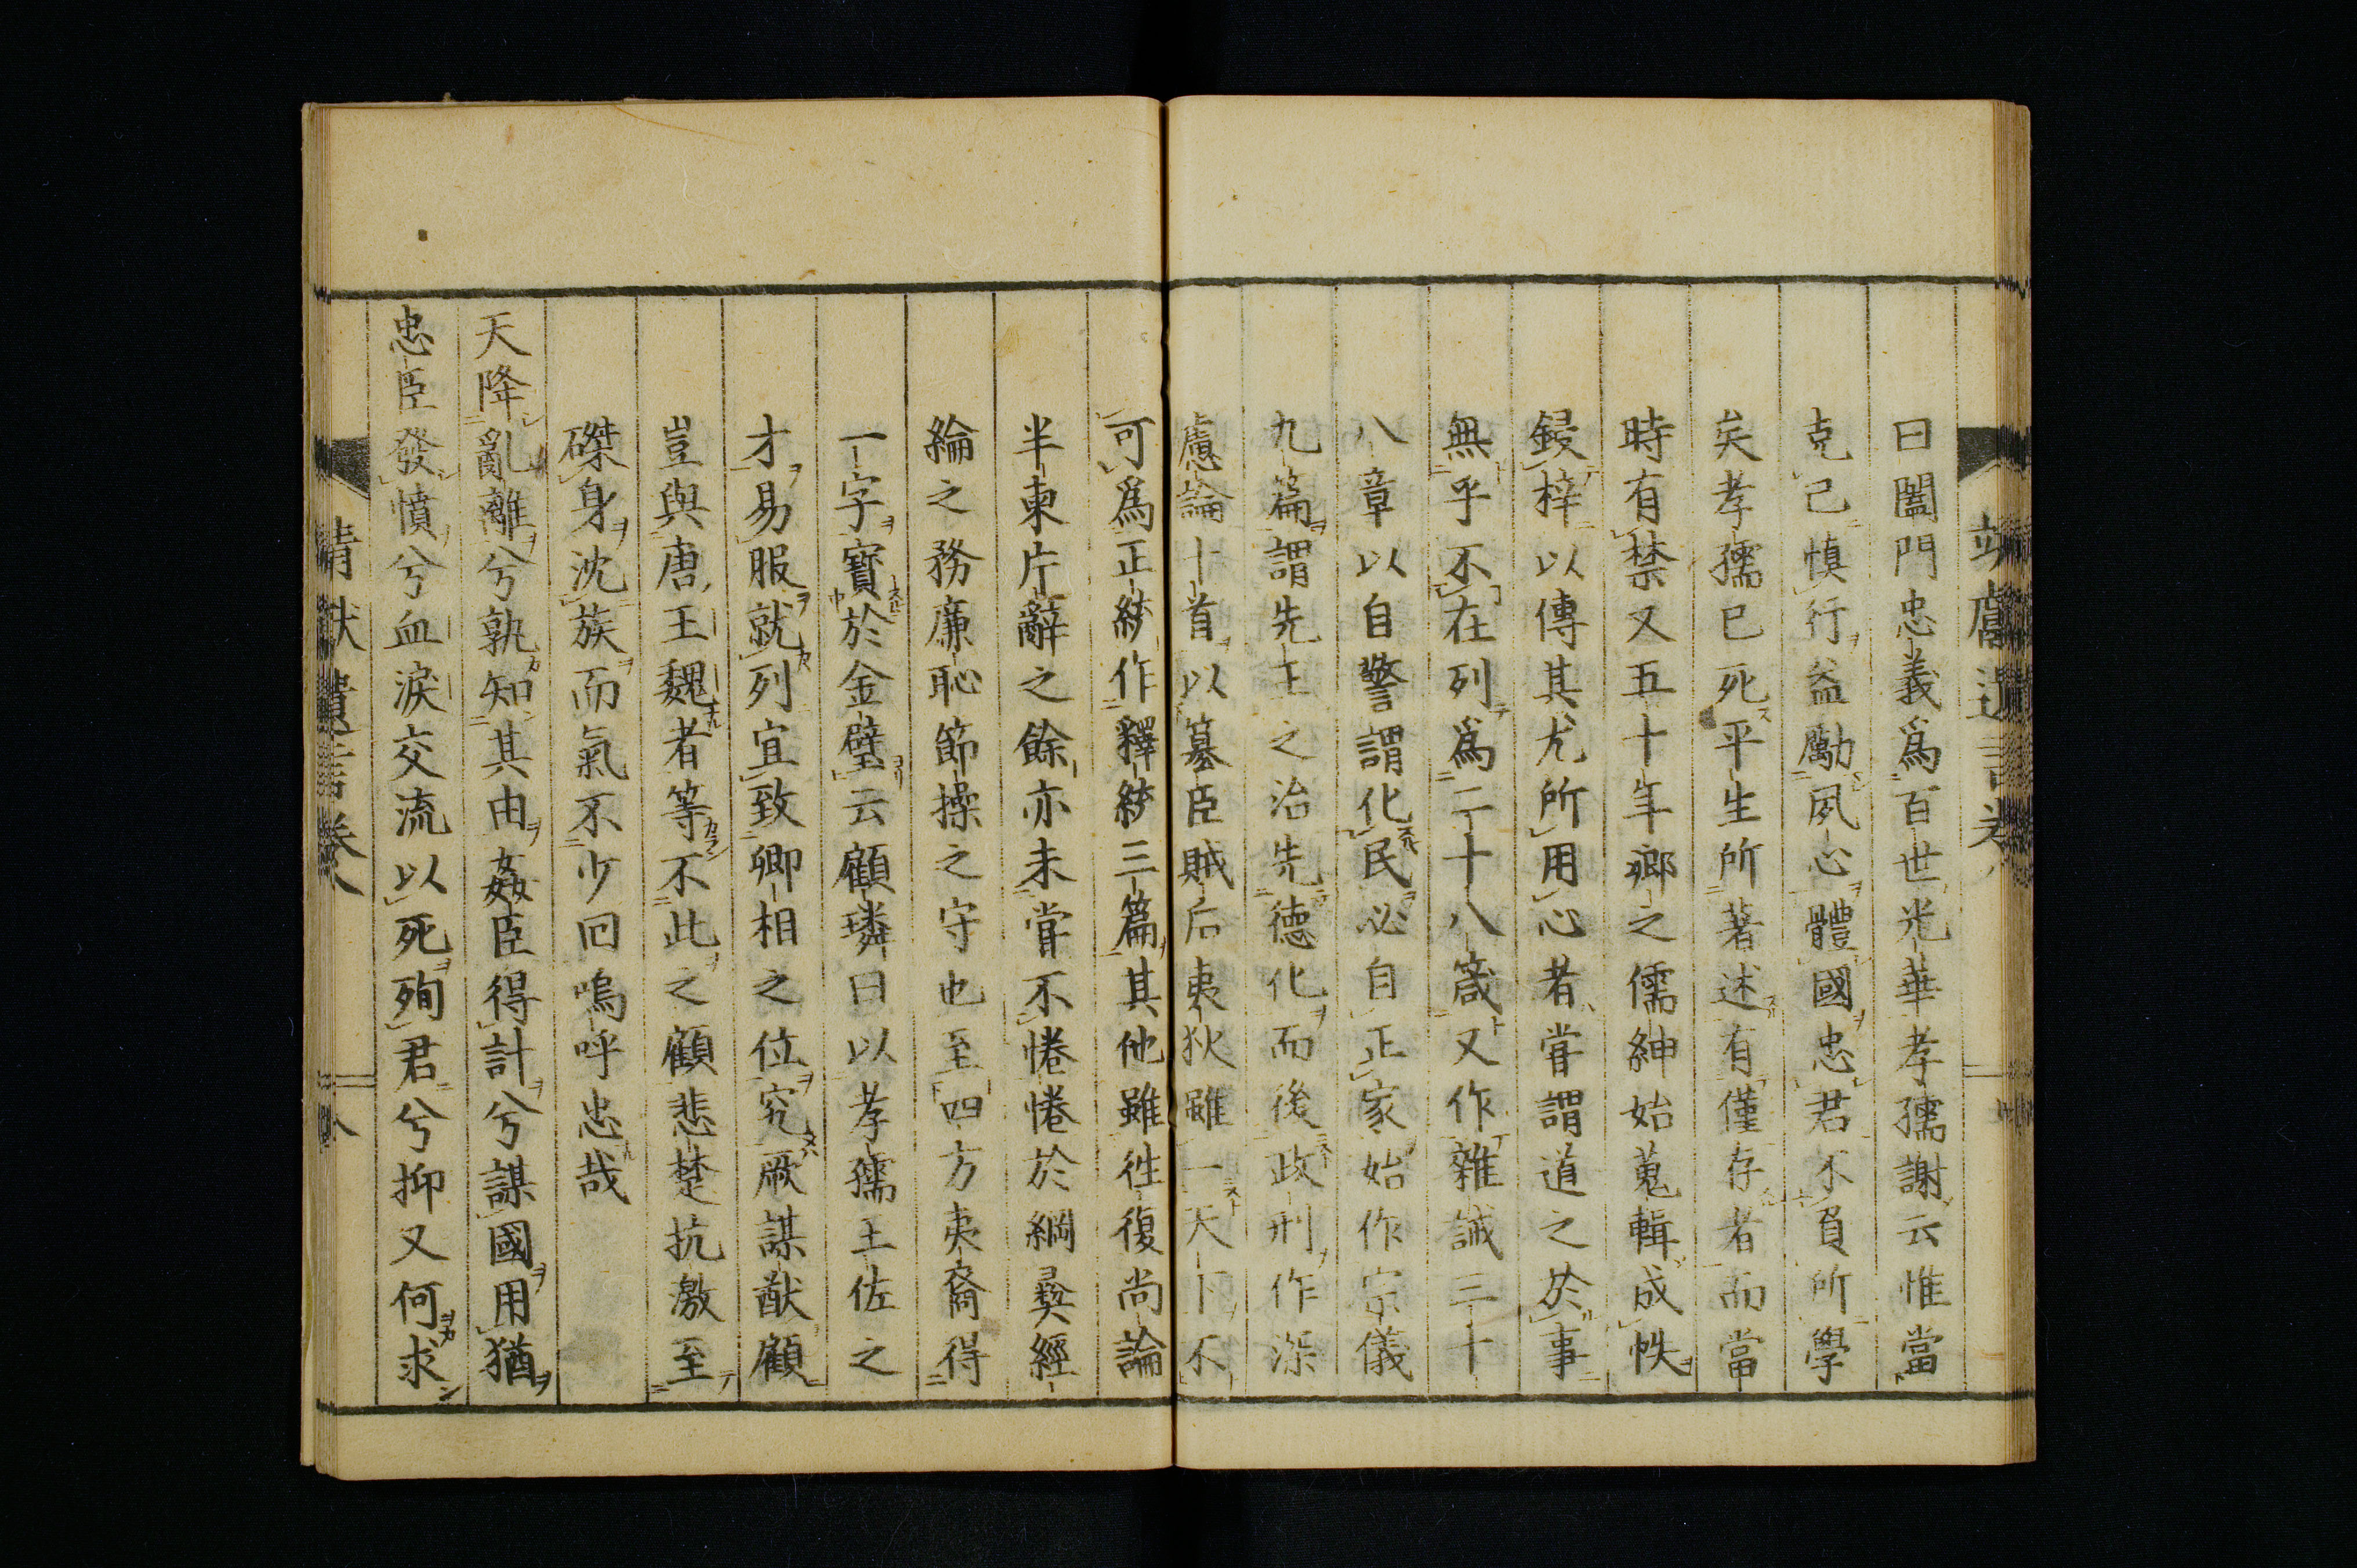 曰闔門忠義爲百世光華孝孺謝云惟當
克己慎行益勵夙心體國忠君不負所學
矣孝孺已死平生所著述有僅存者而當
時有禁又五十年鄉之儒紳始蒐輯成帙
鋟梓以傳其尤所用心者嘗謂道之於事
無乎不在列爲二十八箴又作雜誡三十
八章以自警謂化民必自正家始作宗儀
九篇謂先王之治先德化而後政刑作深
慮論十首以簒臣賊后夷狄雖一天下不
可爲正統作釋統三篇其他雖徃復尚論
半柬片辭之餘亦未甞不惓惓於綱彝經
綸之務廉恥節操之守也至四方夷裔得
一字寳於金璧云顧璘曰以孝孺王佐之
才易服就列宜致卿相之位究厥謀猷顧
豈與唐王魏者等不此之顧悲楚抗激至
磔身沈族而氣不少回嗚呼忠哉
天降亂離兮孰知其由姦臣得計兮謀國用猶
忠臣發憤兮血淚交流以死殉君兮抑又何求
靖献遺言卷八
八